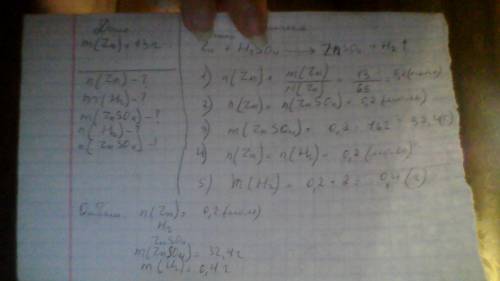 Дано:
m(Zn) = 13г
n(Zn) - ?
m(H2) - ?
m(ZnSO4) - ?
n(H2) - ?
n(ZnSO4) - ?
Zn + H2SO4 → ZnSO4 + H2↑
1) n(Zn) = m(Zn)/M(Zn) = 13/65 = 0,2 (моль)
2) n(Zn) = n(ZnSO4) = 0,2 (моль)
3) m(ZnSO4) = 0,2 · 162 = 32,4(г)
4) n(Zn) = n(H2) = 0,2 (моль)
5) m(H2) = 0,2 · 2 = 0,4 (г)
Ответ: n(Zn) = 0,2 (моль)
H2
ZnSO4
m(ZnSO4) = 32,4г
m(H2) = 0,4г